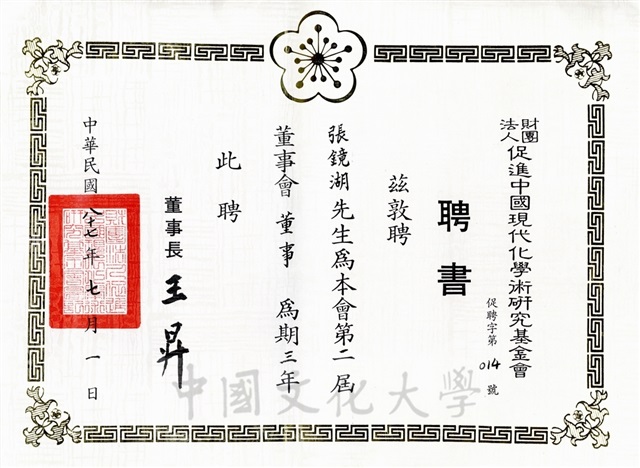 財團法人促進中國現代化學術研究基金會
聘書
促聘字第014號
茲敦聘
張鏡湖先生為本會第二屆
董事會董事為期三年
此聘
董事長王昇
中華民國八十七年七月一日
中國文化大學